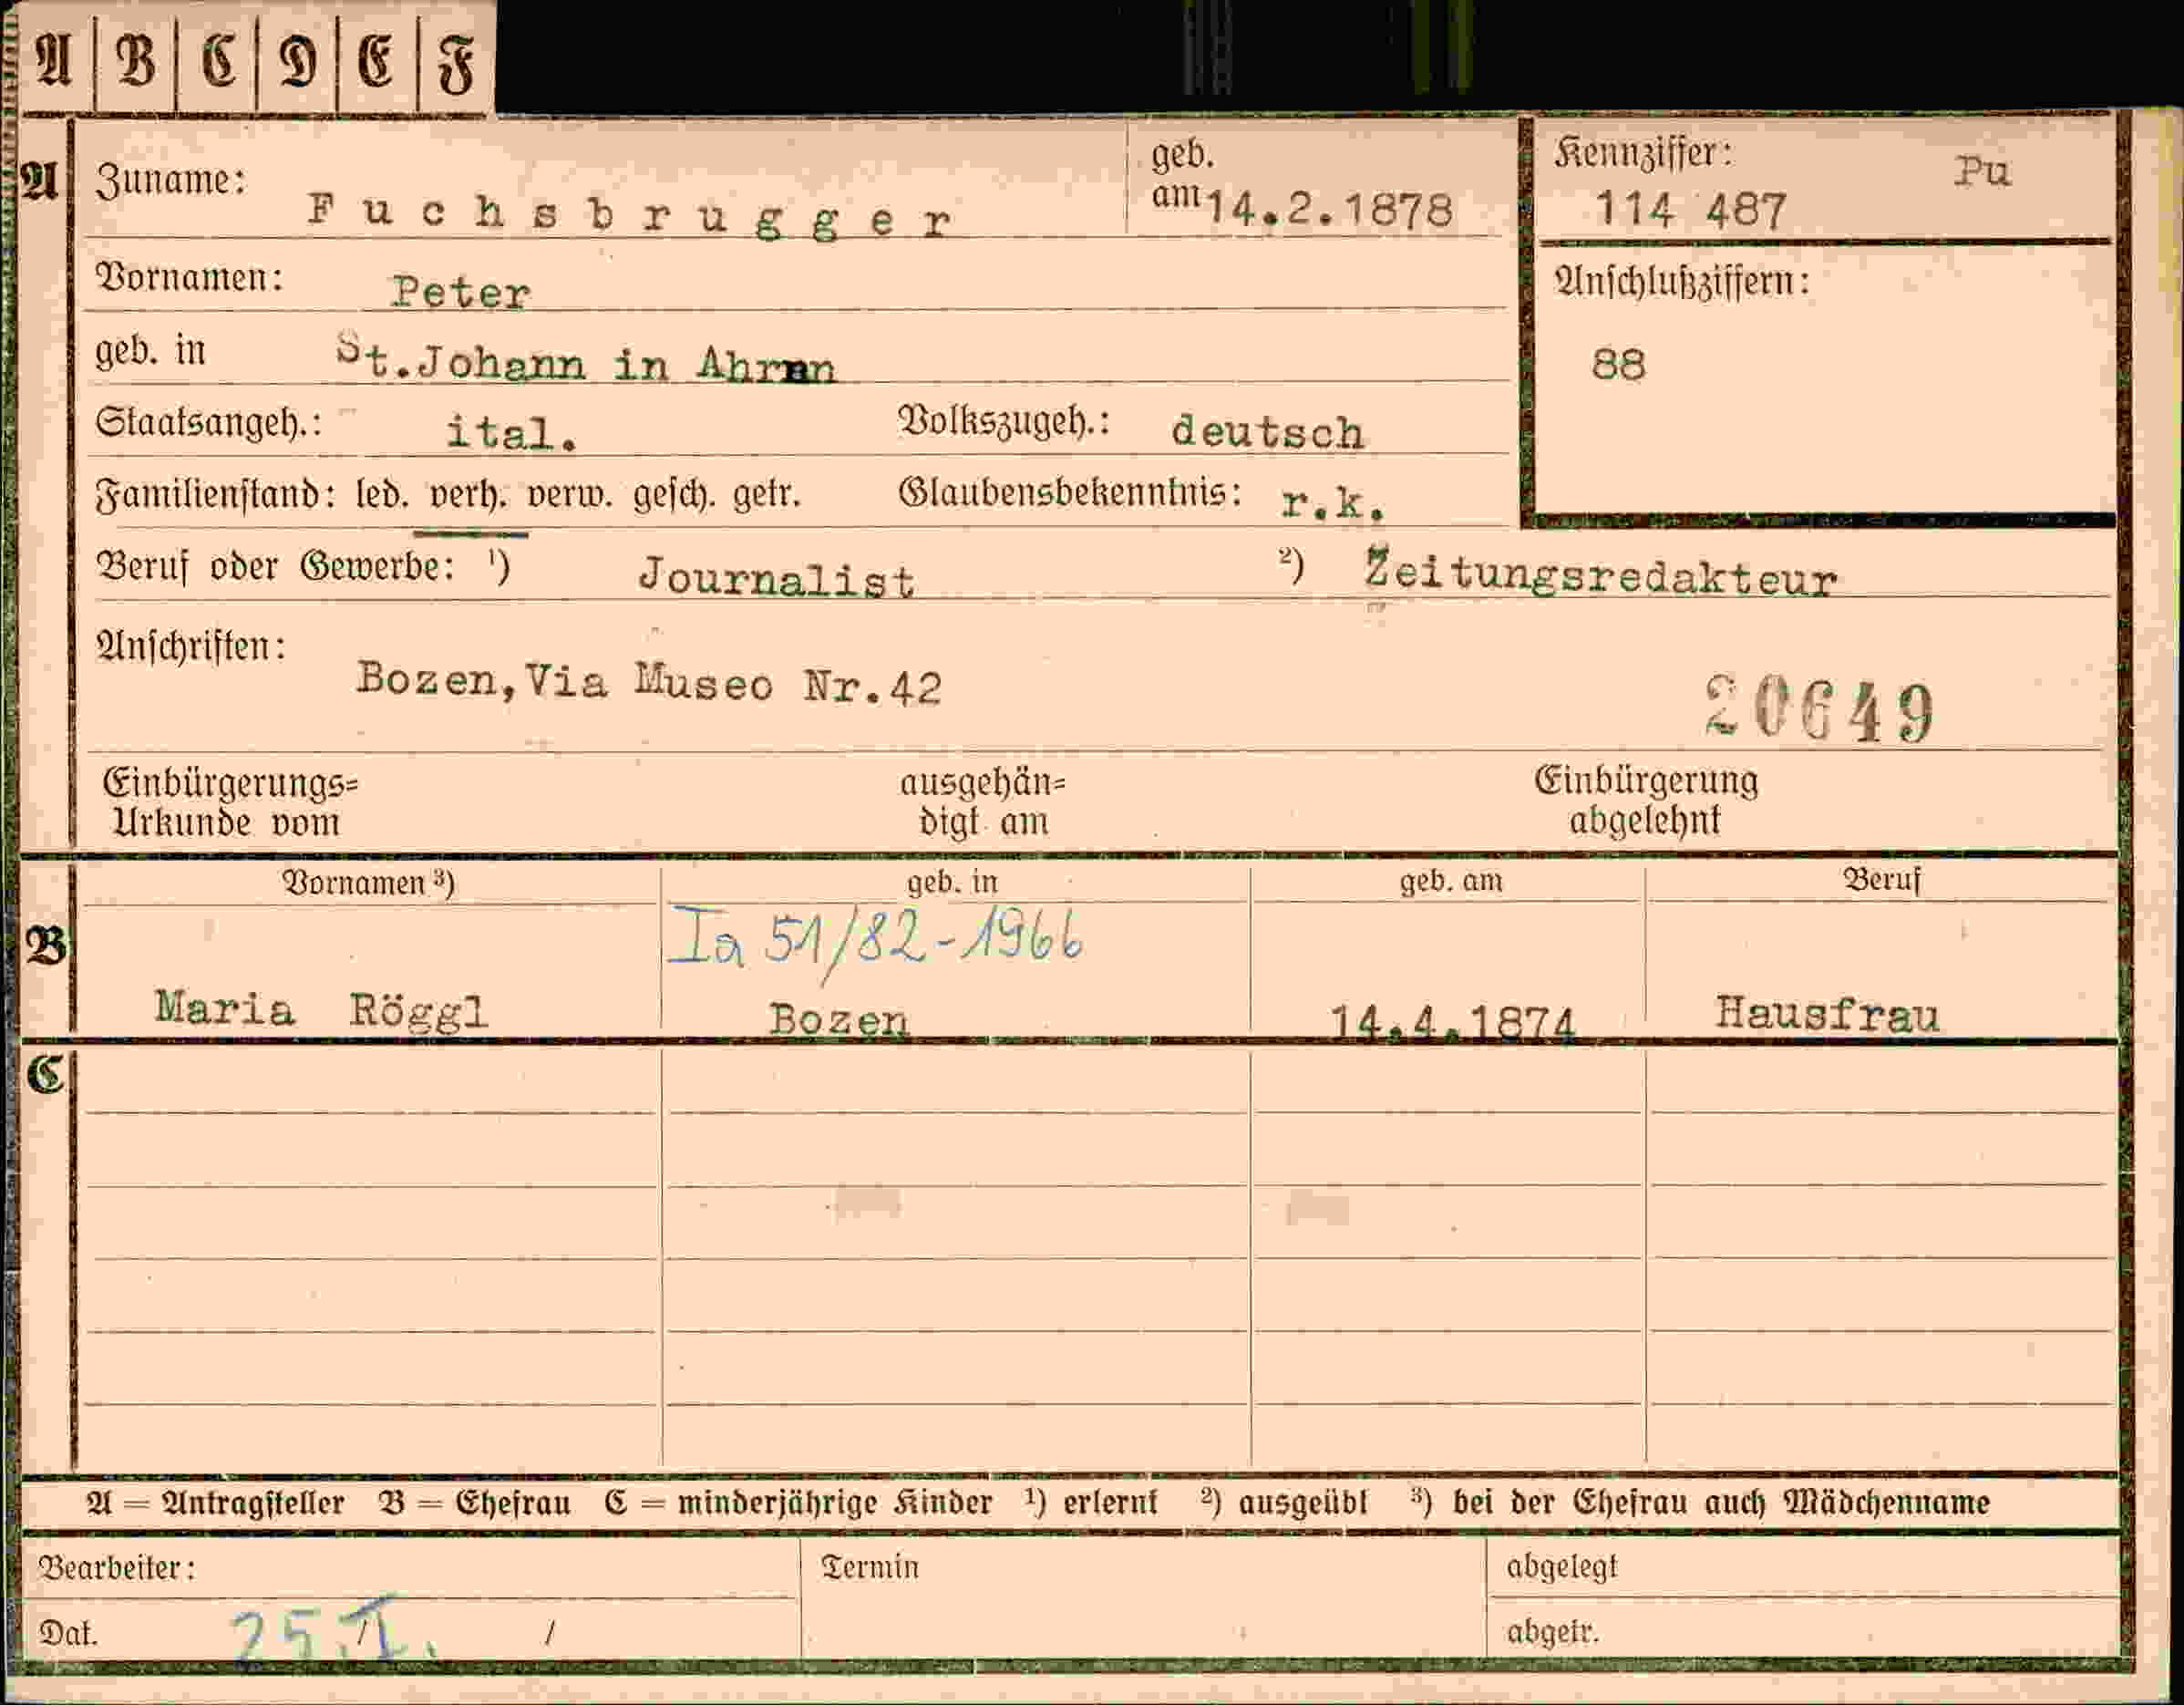 A B C D E F
A Zuname: Fuchsbrugger geb. am 14.2.1878 Kennziffer: 114 487 Pu
Vornamen: Peter Anschlußziffern:
geb. in St.Johann in Ahrn 88
Staatsangeh.: ital. Volkszugeh.: deutsch
Familienstand: led. verh. verw. gesch. getr. Glaubensbekenntnis: r.k.
Beruf oder Gewerbe: ¹) Journalist ²) Zeitungsredakteur
Anschriften: Bozen,Via Museo Nr.42
20649
Einbürgerungs= ausgehän= Einbürgerung
Urkunde vom digt am abgelehnt
Vornamen ³) geb. in geb. am Beruf
B Ia 51/82-1966
Maria Röggl Bozen 14.4.1874 Hausfrau
C
A = Antragsteller B = Ehefrau C = minderjährige Kinder ¹) erlernt ²) ausgeübt ³) bei der Ehefrau auch Mädchenname
Bearbeiter: Termin abgelegt
Dat. 25. I. / / abgetr.